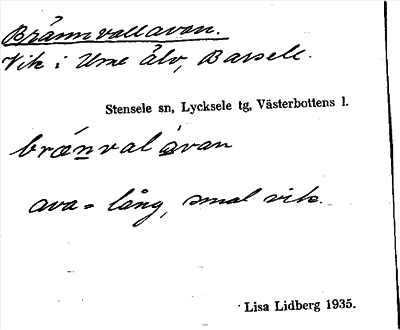 Brännvallavan.
Vik i Ume älv, Barsele.
Stensele sn, Lycksele tg, Västerbottens l.
brǽnval ávan
ava = lång, smal vik.
Lisa Lidberg 1935.